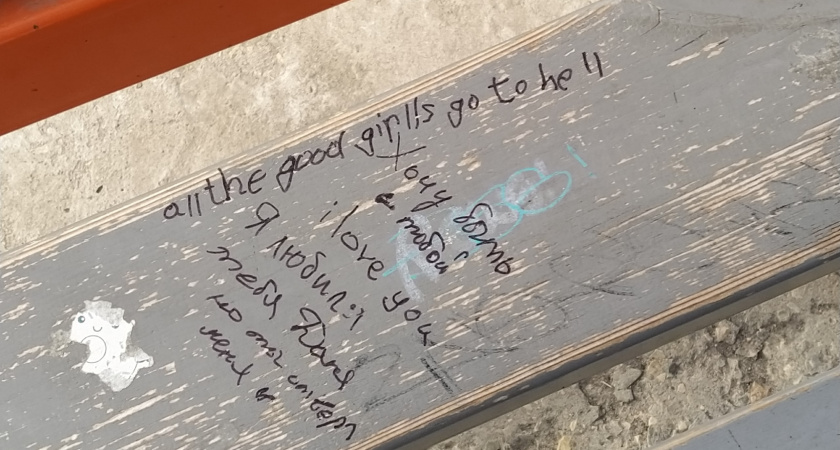 all the good girlls go to hell
Хочу быть
с тобой
i love you
Я любила
тебя Даня
но ты отверг
меня